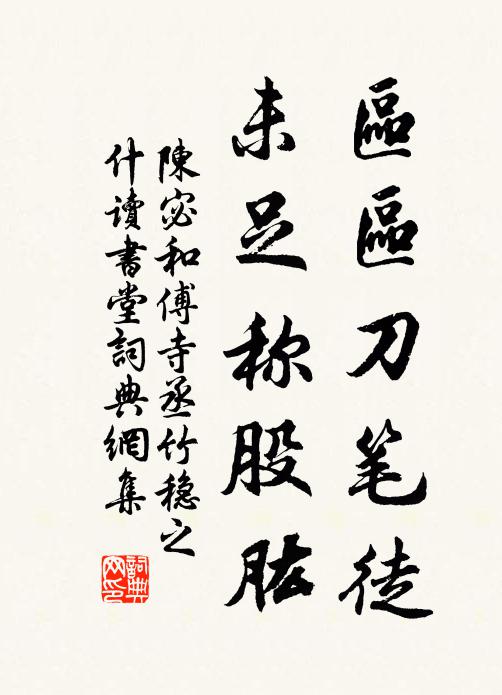 區區刀笔徒
未足称股肱
陳宓和傅寺丞竹穏之
什讀書堂詞典網集
詞典
网印